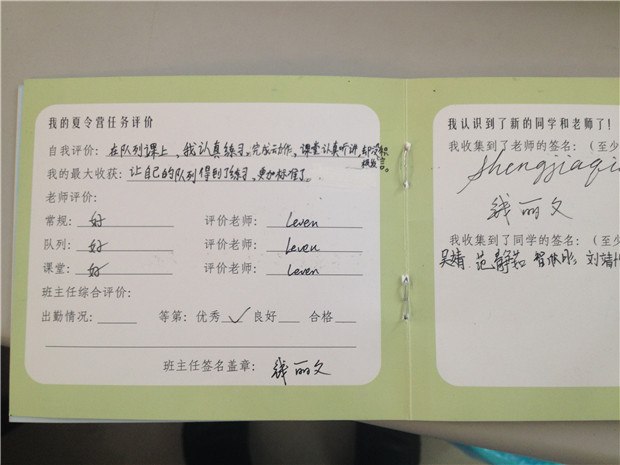 我的夏令营任务评价
自我评价：在队列课上，我认真练习，完成动作，课堂认真听讲，积极发言。
我的最大收获：让自己的队列得到了练习，更加标准了。
老师评价：
常规：好 评价老师：Leven
队列：好 评价老师：Leven
课堂：好 评价老师：Leven
班主任综合评价：
出勤情况： 等第：优秀✓ 良好 合格
班主任签名盖章：钱丽文
我认识到了新的同学和老师了！
我收集到了老师的签名：（至少
Shengjiaqi
钱丽文
我收集到了同学的签名：（至少
吴婧 范静茹 刘靖